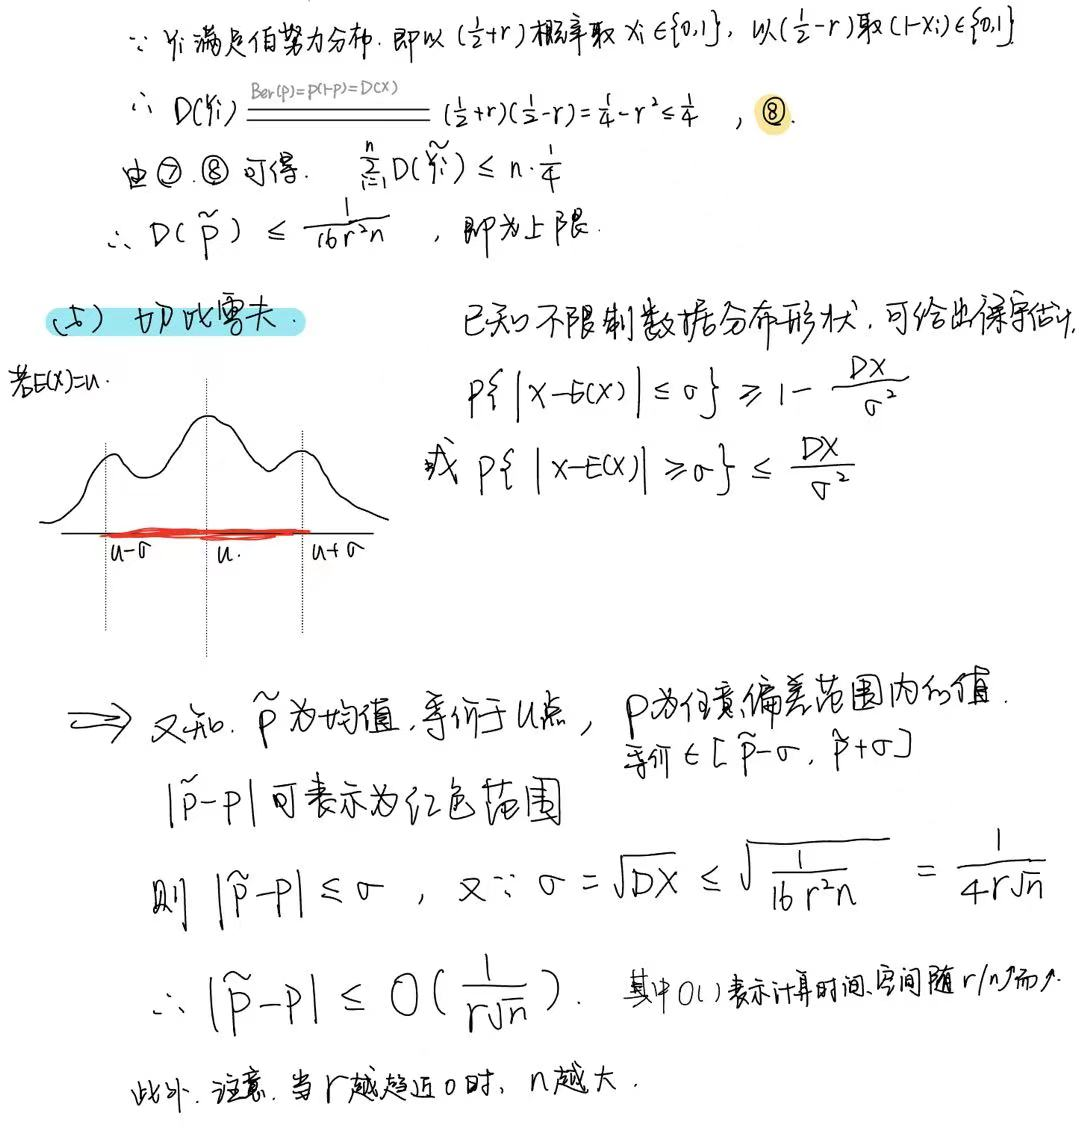 ∵ Yi 满足伯努力分布. 即以 (1/2+r) 概率取 Xi∈{0,1}, 以(1/2-r)取(1-Xi)∈{0,1}
∴ D(Yi) Ber(p)=p(1-p)=D(X) (1/2+r)(1/2-r)=1/4-r²≤1/4 , ⑧.
由⑦.⑧可得. n∑i=1 D(Ỹi) ≤ n·1/4
∴ D(p̃) ≤ 1/(16r²n) , 即为上限.
(5) 切比雪夫.
已知不限制数据分布形状, 可给出保守估计.
若E(X)=u.
P{|X-E(X)|≤σ} ≥ 1- DX/σ²
或 P{|X-E(X)|≥σ} ≤ DX/σ²
u-σ u. u+σ
⇒ 又知. p̃ 为均值, 等价于u点, p为任意偏差范围内的值.
等价∈[p̃-σ, p̃+σ]
|p̃-p| 可表示为红色范围
则 |p̃-p| ≤ σ , 又∵ σ = √DX ≤ √(1/(16r²n)) = 1/(4r√n)
∴ |p̃-p| ≤ O(1/(r√n)). 其中O( )表示计算时间、空间随r/n↑而↑.
此外. 注意. 当r越趋近0时, n越大.